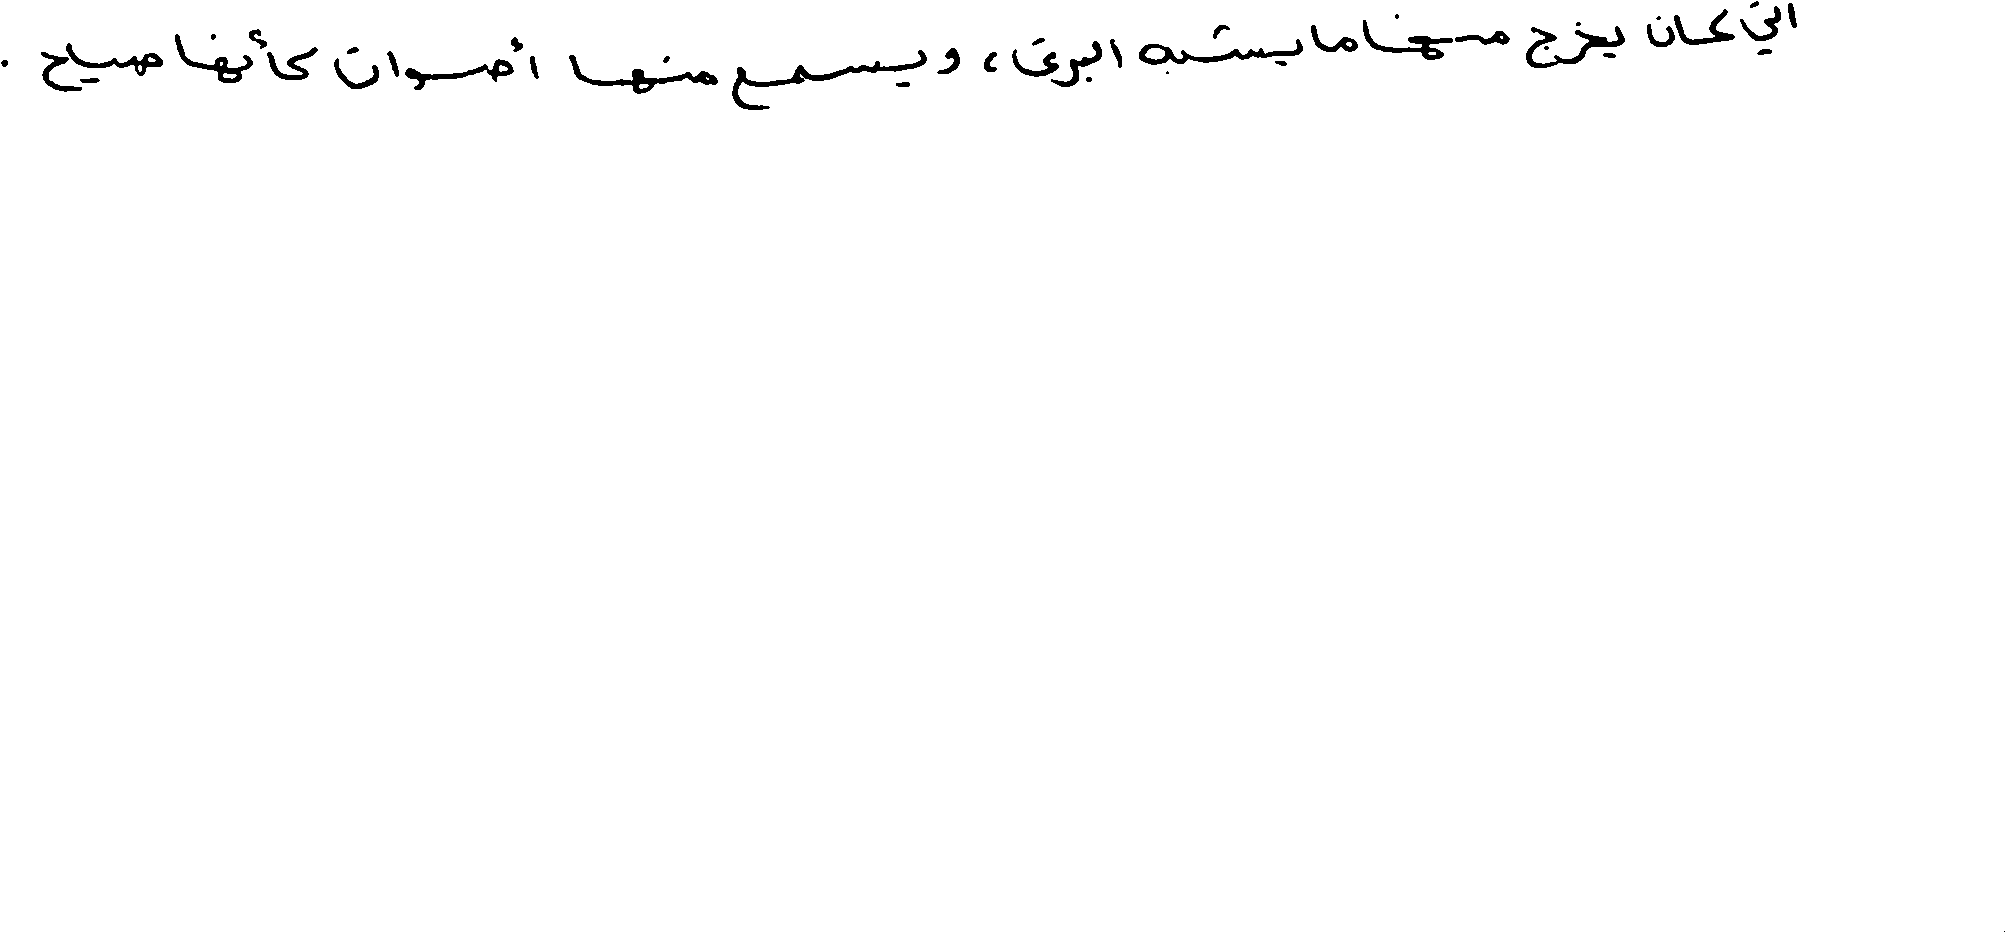 التي كان يخرج منها ما يشبه البرق، ويسمع منها أصوات كأنها صياح .